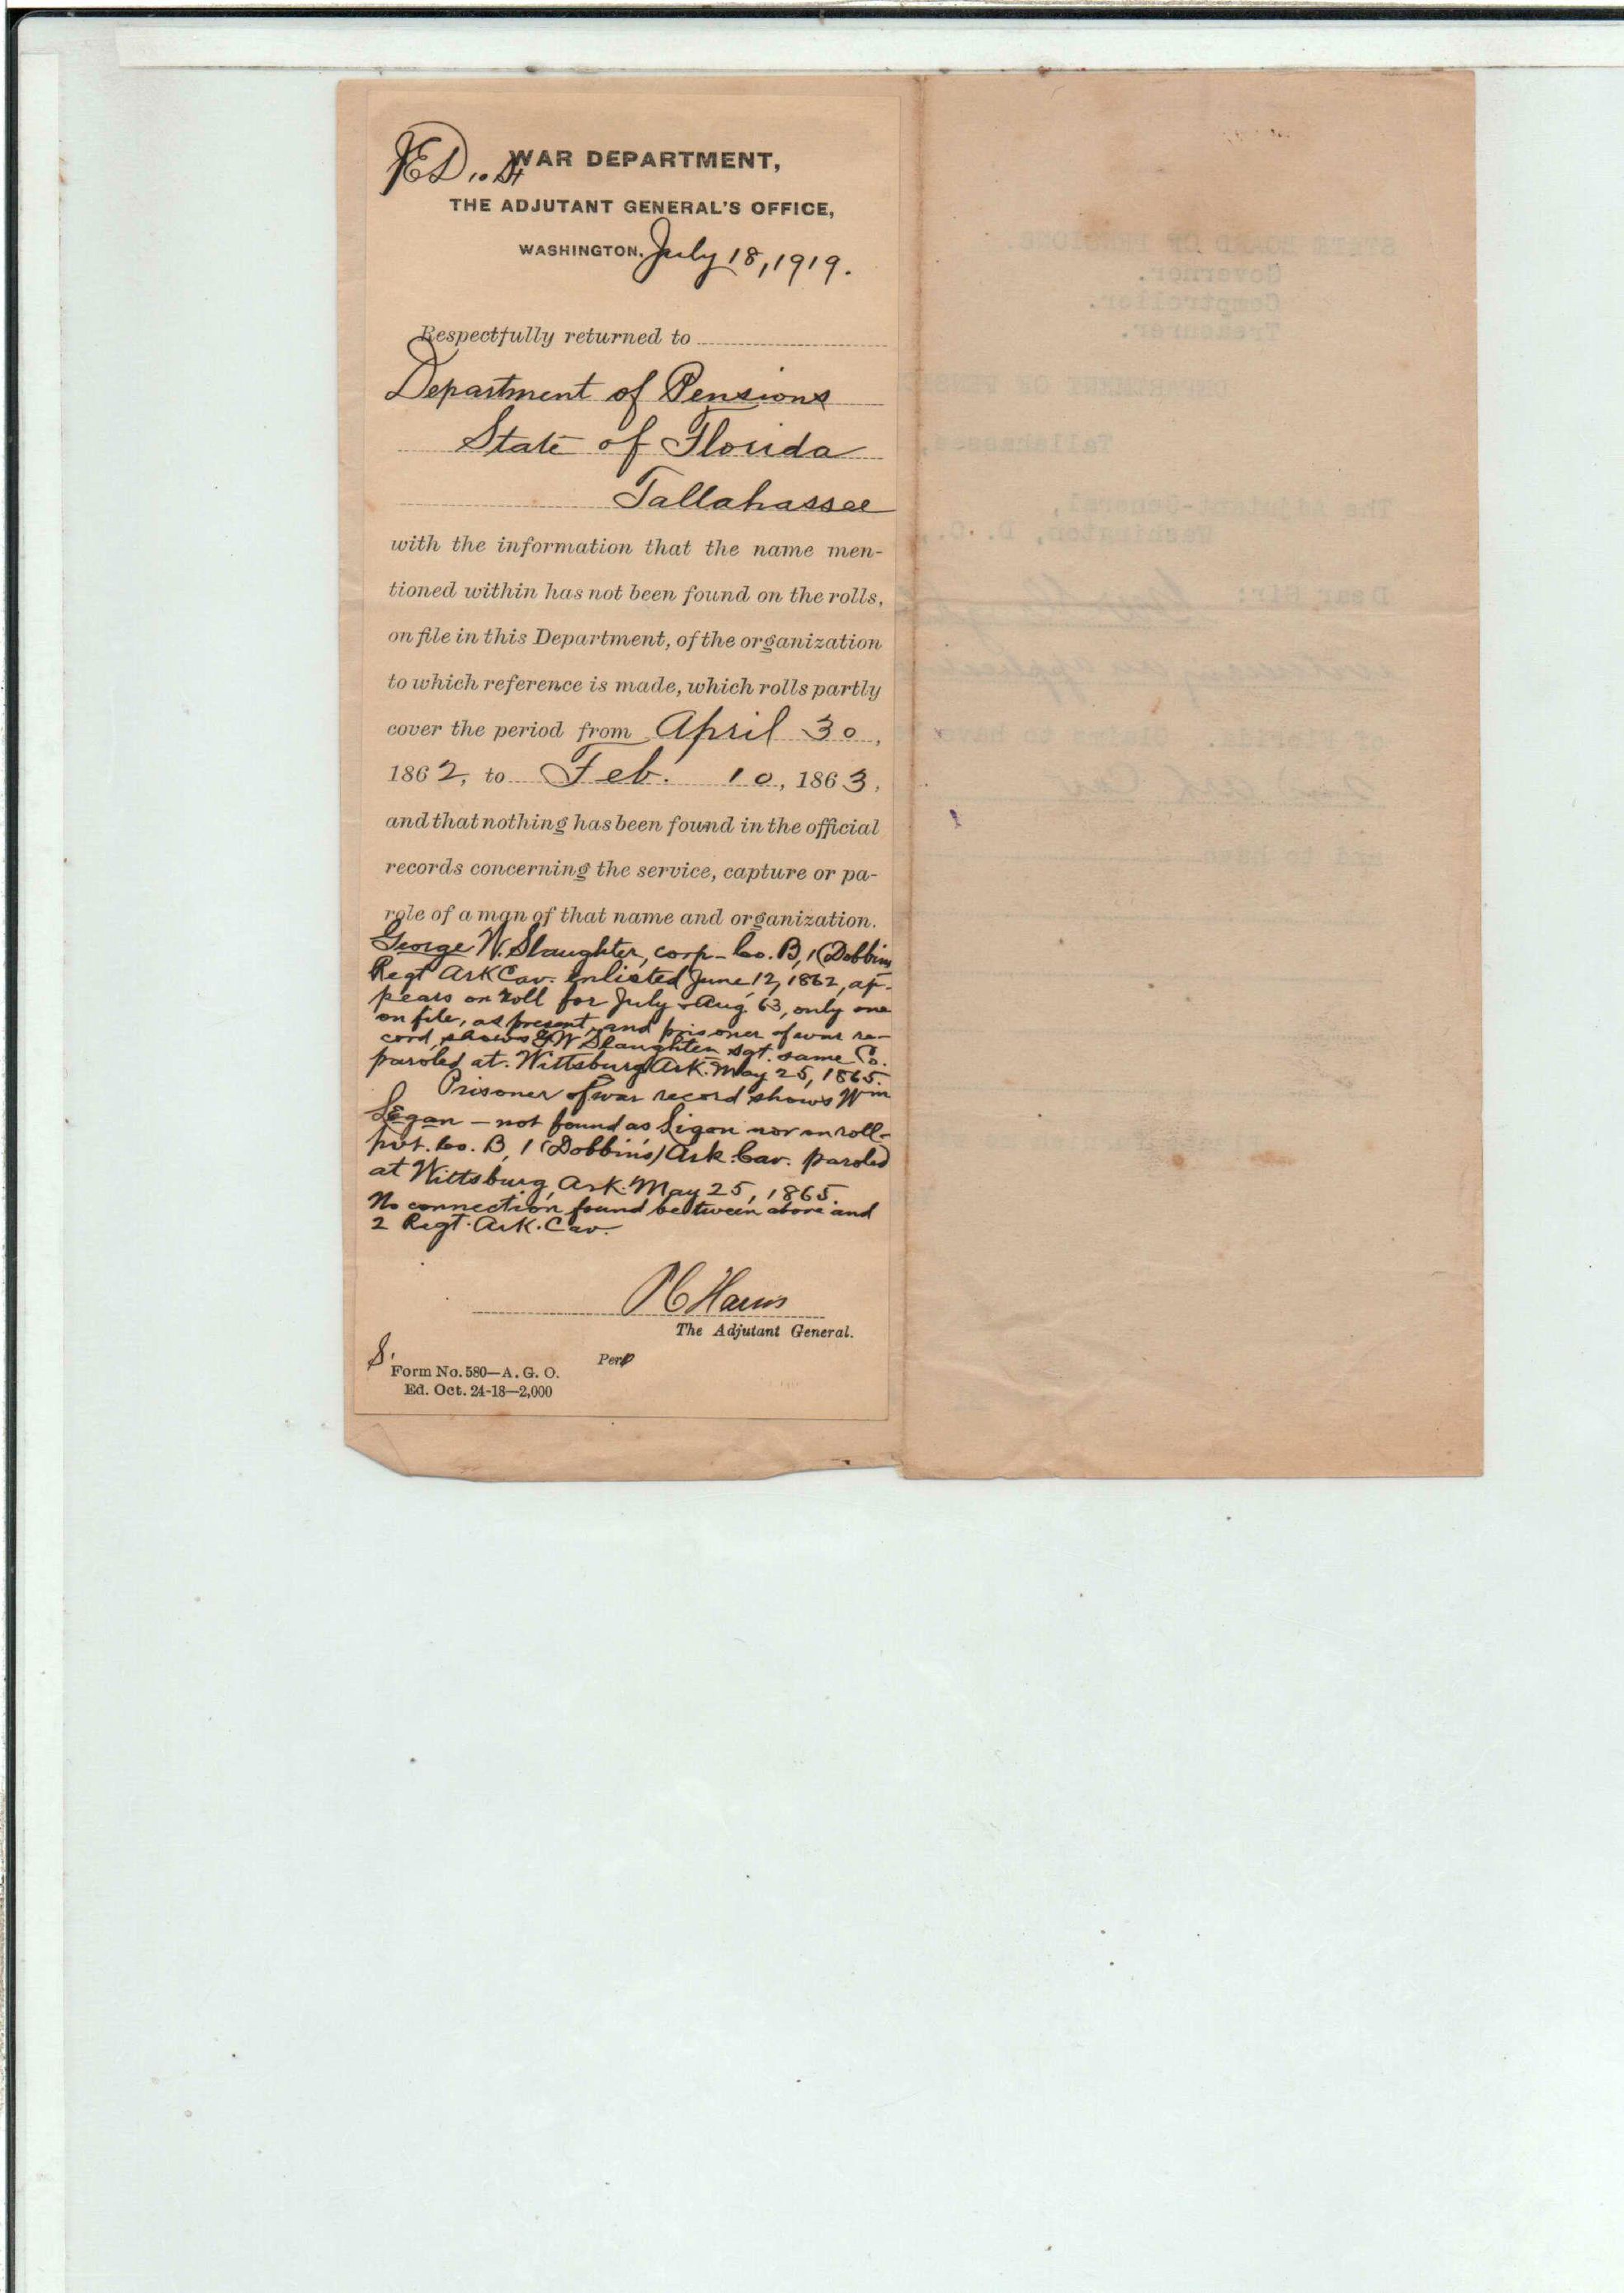 WAR DEPARTMENT,
THE ADJUTANT GENERAL'S OFFICE,
WASHINGTON, July 18, 1919.
Respectfully returned to
Department of Pensions
State of Florida
Tallahassee
with the information that the name men-
tioned within has not been found on the rolls,
on file in this Department, of the organization
to which reference is made, which rolls partly
cover the period from April 30,
1862, to Feb. 10, 1863,
and that nothing has been found in the official
records concerning the service, capture or pa-
role of a man of that name and organization.
George W. Slaughter, corp- Co. B, 1 (Dobbins
Regt Ark Cav. enlisted June 12, 1862, ap-
pears on roll for July & Aug 63, only one
on file, as present, and prisoner of war re-
cord, shows G W Slaughter sgt. same Co.
paroled at Wittsburg Ark. May 25, 1865.
Prisoner of war record shows Wm
Legan - not found as Ligon nor on roll-
pvt. Co. B, 1 (Dobbins) Ark. Cav. paroled
at Wittsburg, Ark. May 25, 1865.
No connection found between above and
2 Regt. Ark. Cav.
P C Harris
The Adjutant General.
Per
S.
Form No. 580—A. G. O.
Ed. Oct. 24-18—2,000
STATE BOARD OF PENSIONS
Governor.
Comptroller.
Treasurer.
Tallahassee,
The Adjutant-General,
Washington, D. C.,
Dear Sir: